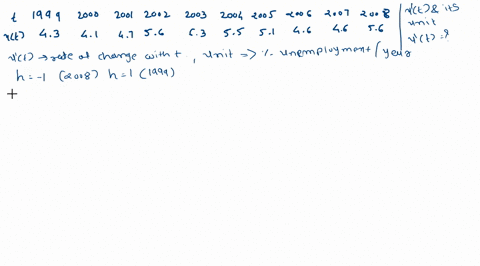 t 1999 2000 2001 2002 2003 2004 2005 2006 2007 2008
u(t) 4.3 4.1 4.7 5.6 6.3 5.5 5.1 4.6 4.6 5.6
u(t) & its
unit
u'(t) = ?
u'(t) → rate of change with t , unit => % unemployment / year
h = -1 (2008) h = 1 (1999)